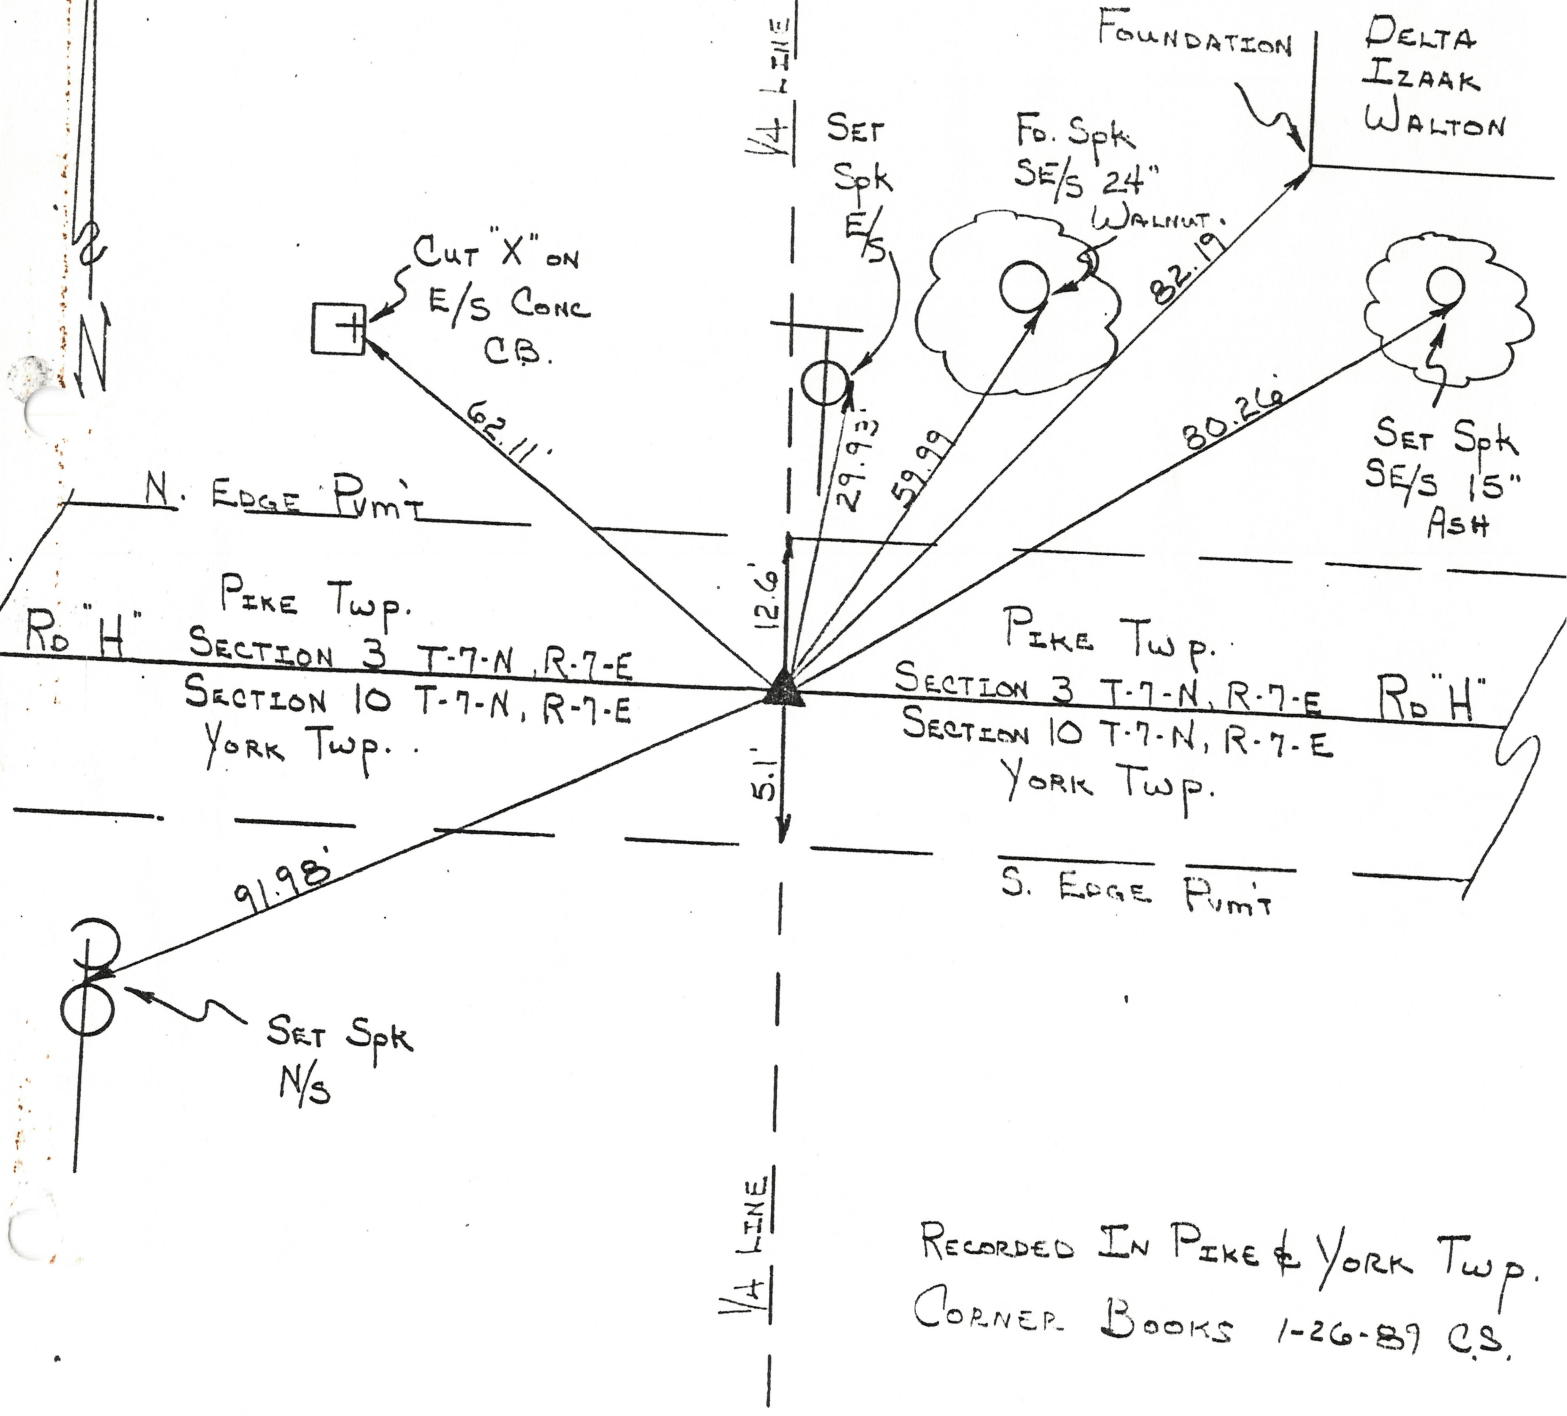 FOUNDATION
DELTA
IZAAK
WALTON
1/4 LINE
SET
Spk
E/S
FD. Spk
SE/S 24"
WALNUT.
CUT "X" ON
E/S CONC
CB.
N
62.11'
29.93'
59.99
82.19
80.26'
SET Spk
SE/S 15"
ASH
N. EDGE PVM'T
12.6'
PIKE TWP.
RD "H" SECTION 3 T-7-N, R-7-E
SECTION 10 T-7-N, R-7-E
YORK TWP.
PIKE TWP.
SECTION 3 T-7-N, R-7-E RD "H"
SECTION 10 T-7-N, R-7-E
YORK TWP.
5.1'
91.98'
S. EDGE PVM'T
SET Spk
N/S
1/4 LINE
RECORDED IN PIKE & YORK TWP.
CORNER BOOKS 1-26-89 C.S.